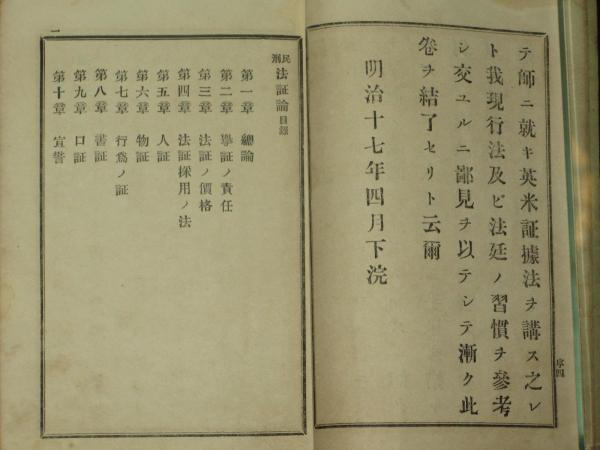 テ師ニ就キ英米証據法ヲ講ス之レ
ト我現行法及ビ法廷ノ習慣ヲ參考
シ交ユルニ鄙見ヲ以テシテ漸ク此
卷ヲ結了セリト云爾
明治十七年四月下浣
序四
民刑法証論目録
第一章 總論
第二章 擧証ノ責任
第三章 法証ノ價格
第四章 法証採用ノ法
第五章 人証
第六章 物証
第七章 行爲ノ証
第八章 書証
第九章 口証
第十章 宣誓
一